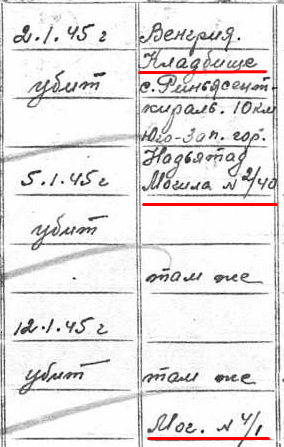 2.1.45 г
убит
5.1.45 г
убит
12.1.45 г
убит
Венгрия.
Кладбище
с. Риньясент-
кираль. 10км
Юго-Зап. гор.
Надьятад
Могила N 2/40
там же
там же
Мог. N 4/1